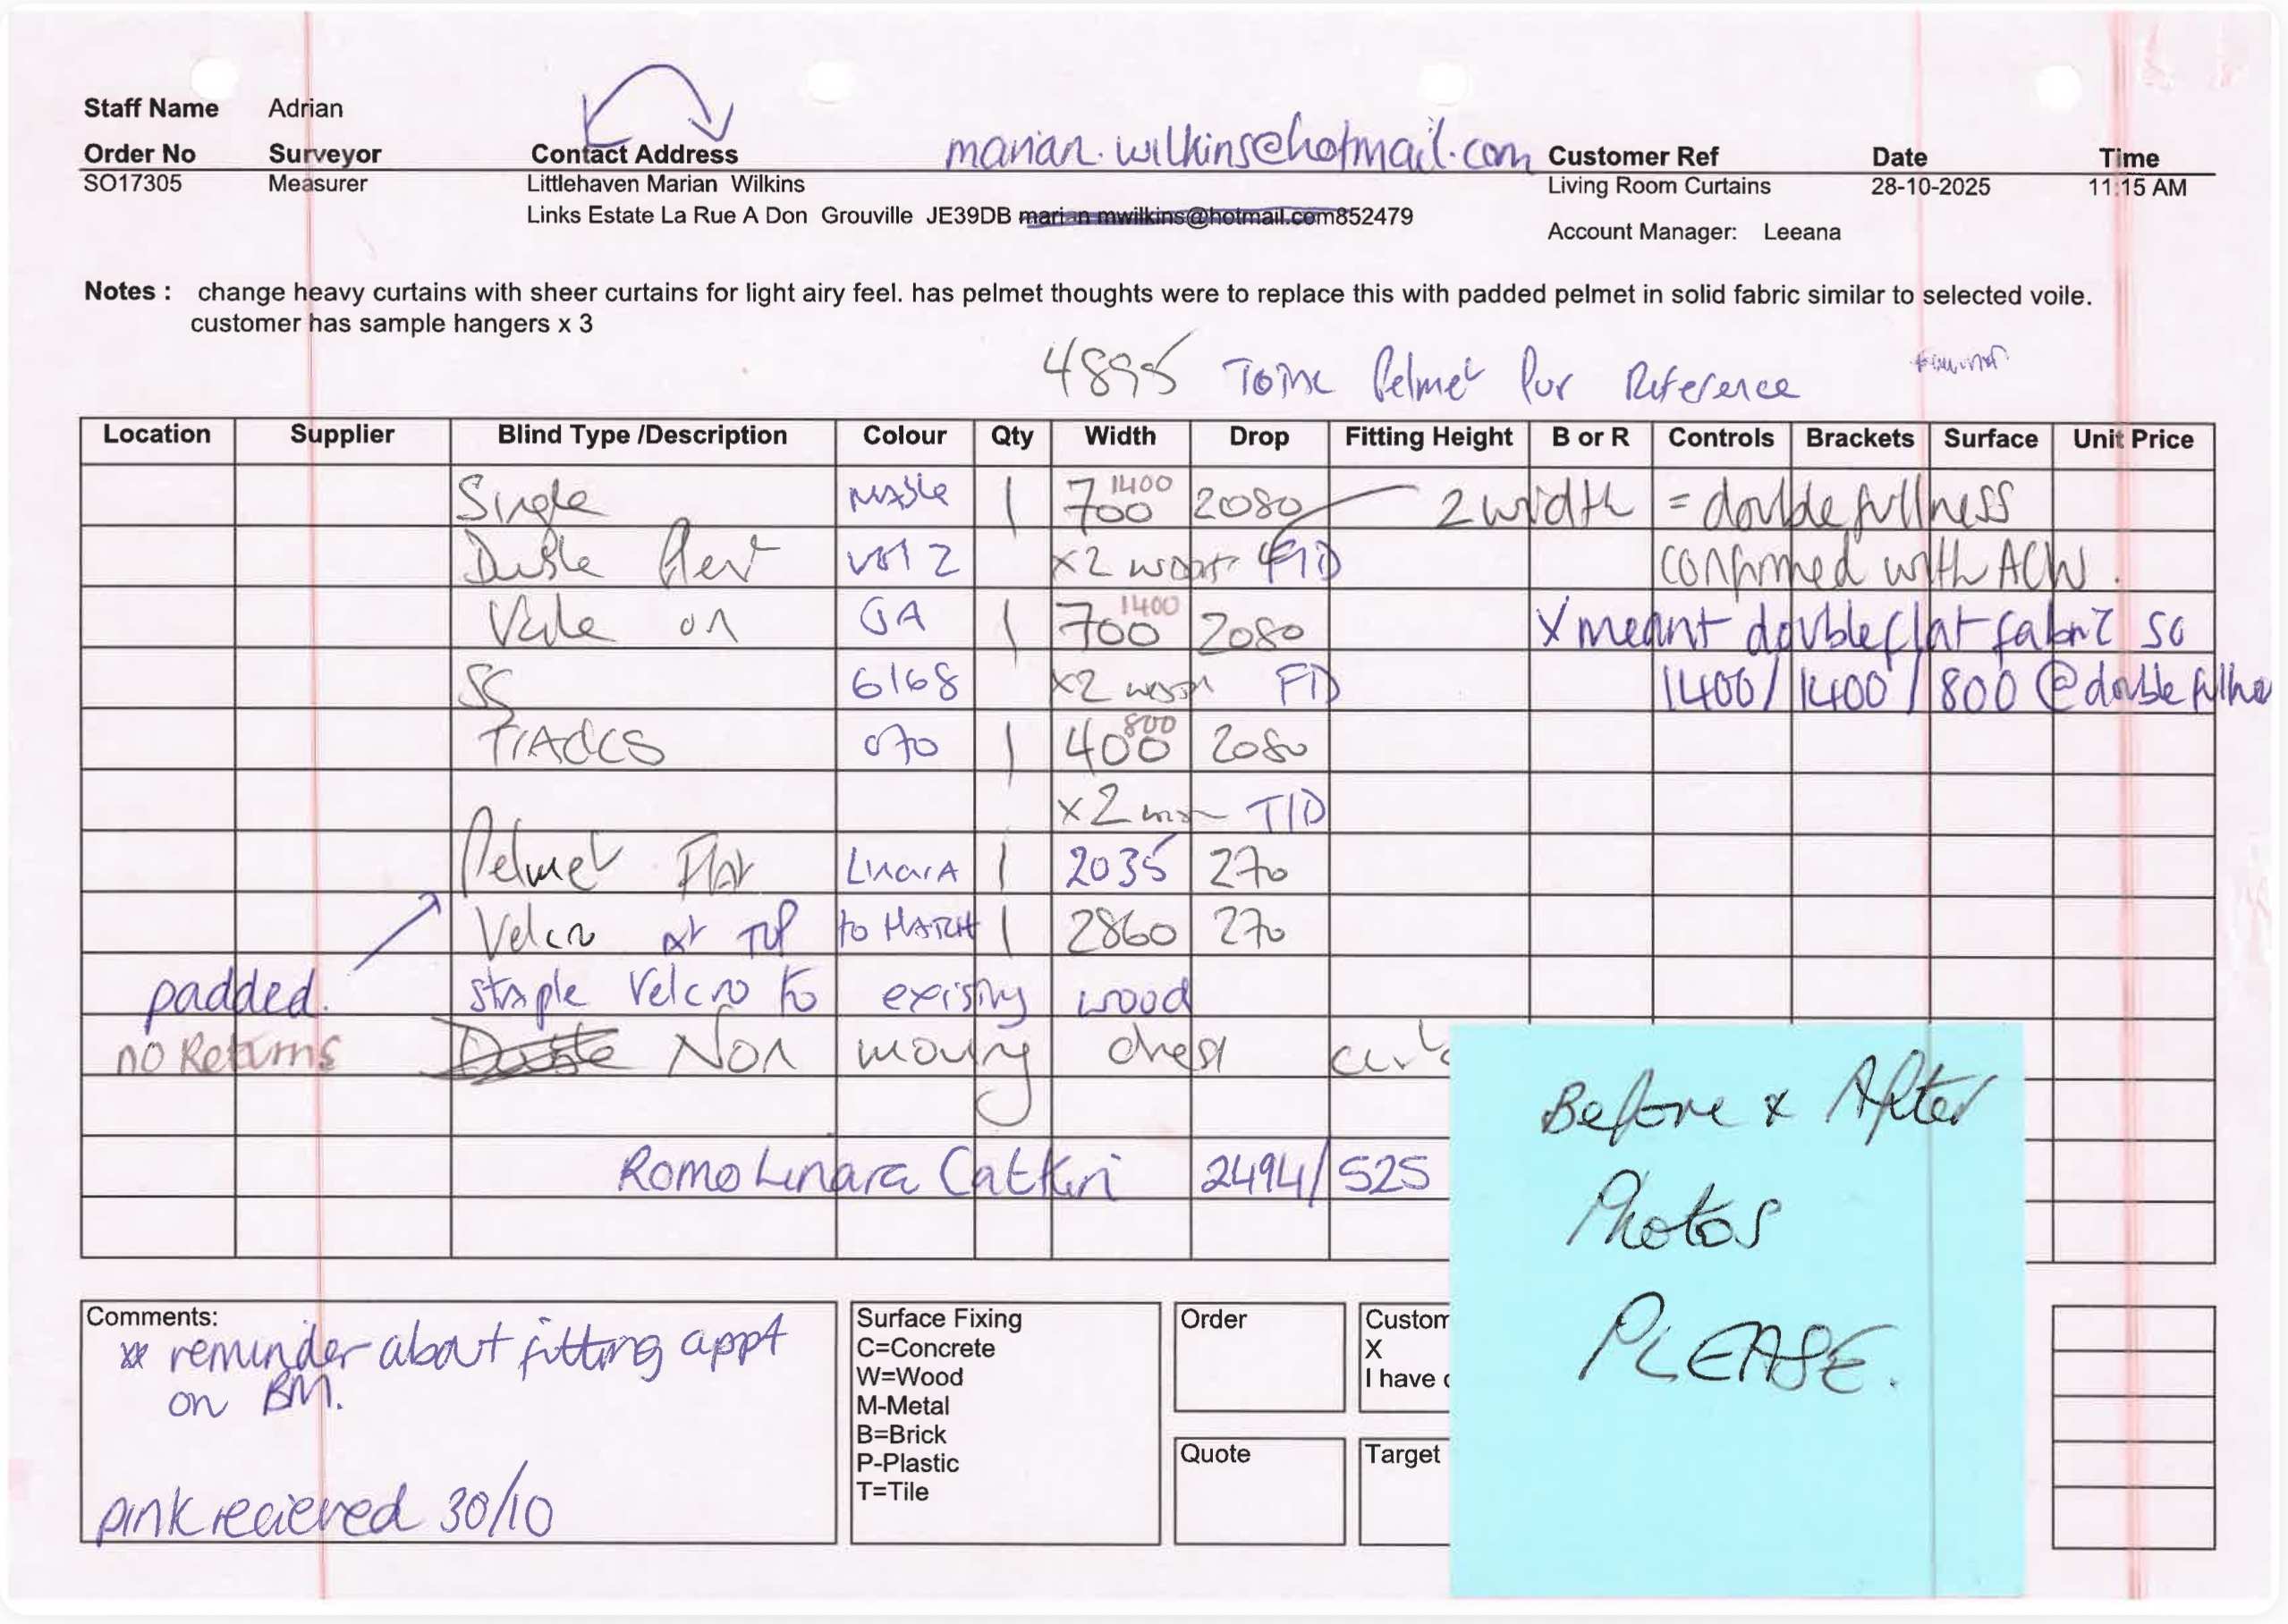 Staff Name Adrian
Order No Surveyor Contact Address marian.wilkins@hotmail.com Customer Ref Date Time
SO17305 Measurer Littlehaven Marian Wilkins Living Room Curtains 28-10-2025 11:15 AM
Links Estate La Rue A Don Grouville JE39DB marian mwilkins@hotmail.com852479
Account Manager: Leeana
Notes : change heavy curtains with sheer curtains for light airy feel. has pelmet thoughts were to replace this with padded pelmet in solid fabric similar to selected voile.
customer has sample hangers x 3
4895 Pelmet Reference
Location Supplier Blind Type /Description Colour Qty Width Drop Fitting Height B or R Controls Brackets Surface Unit Price
Single 1 700 1400 2080 2 width = double fullness
vol 2 x2 confirmed with ACW.
Voile on JA 1 700 1400 2080 X meant double flat fabric so
SS 6168 x2 1400/1400/800 @double
070 1 400 800 2080
x2
Pelmet Flat Linara 1 2035 270
Velcro at TOP to MATCH 1 2860 270
padded. staple Velcro to existing wood
no Returns Non moving
Romo Linara Catkin 2494/525
Before & After
Photos
PLEASE.
Comments:
** reminder about fitting appt
on BM.
pink recieved 30/10
Surface Fixing
C=Concrete
W=Wood
M-Metal
B=Brick
P-Plastic
T=Tile
Order
Quote
Custom
X
I have
Target